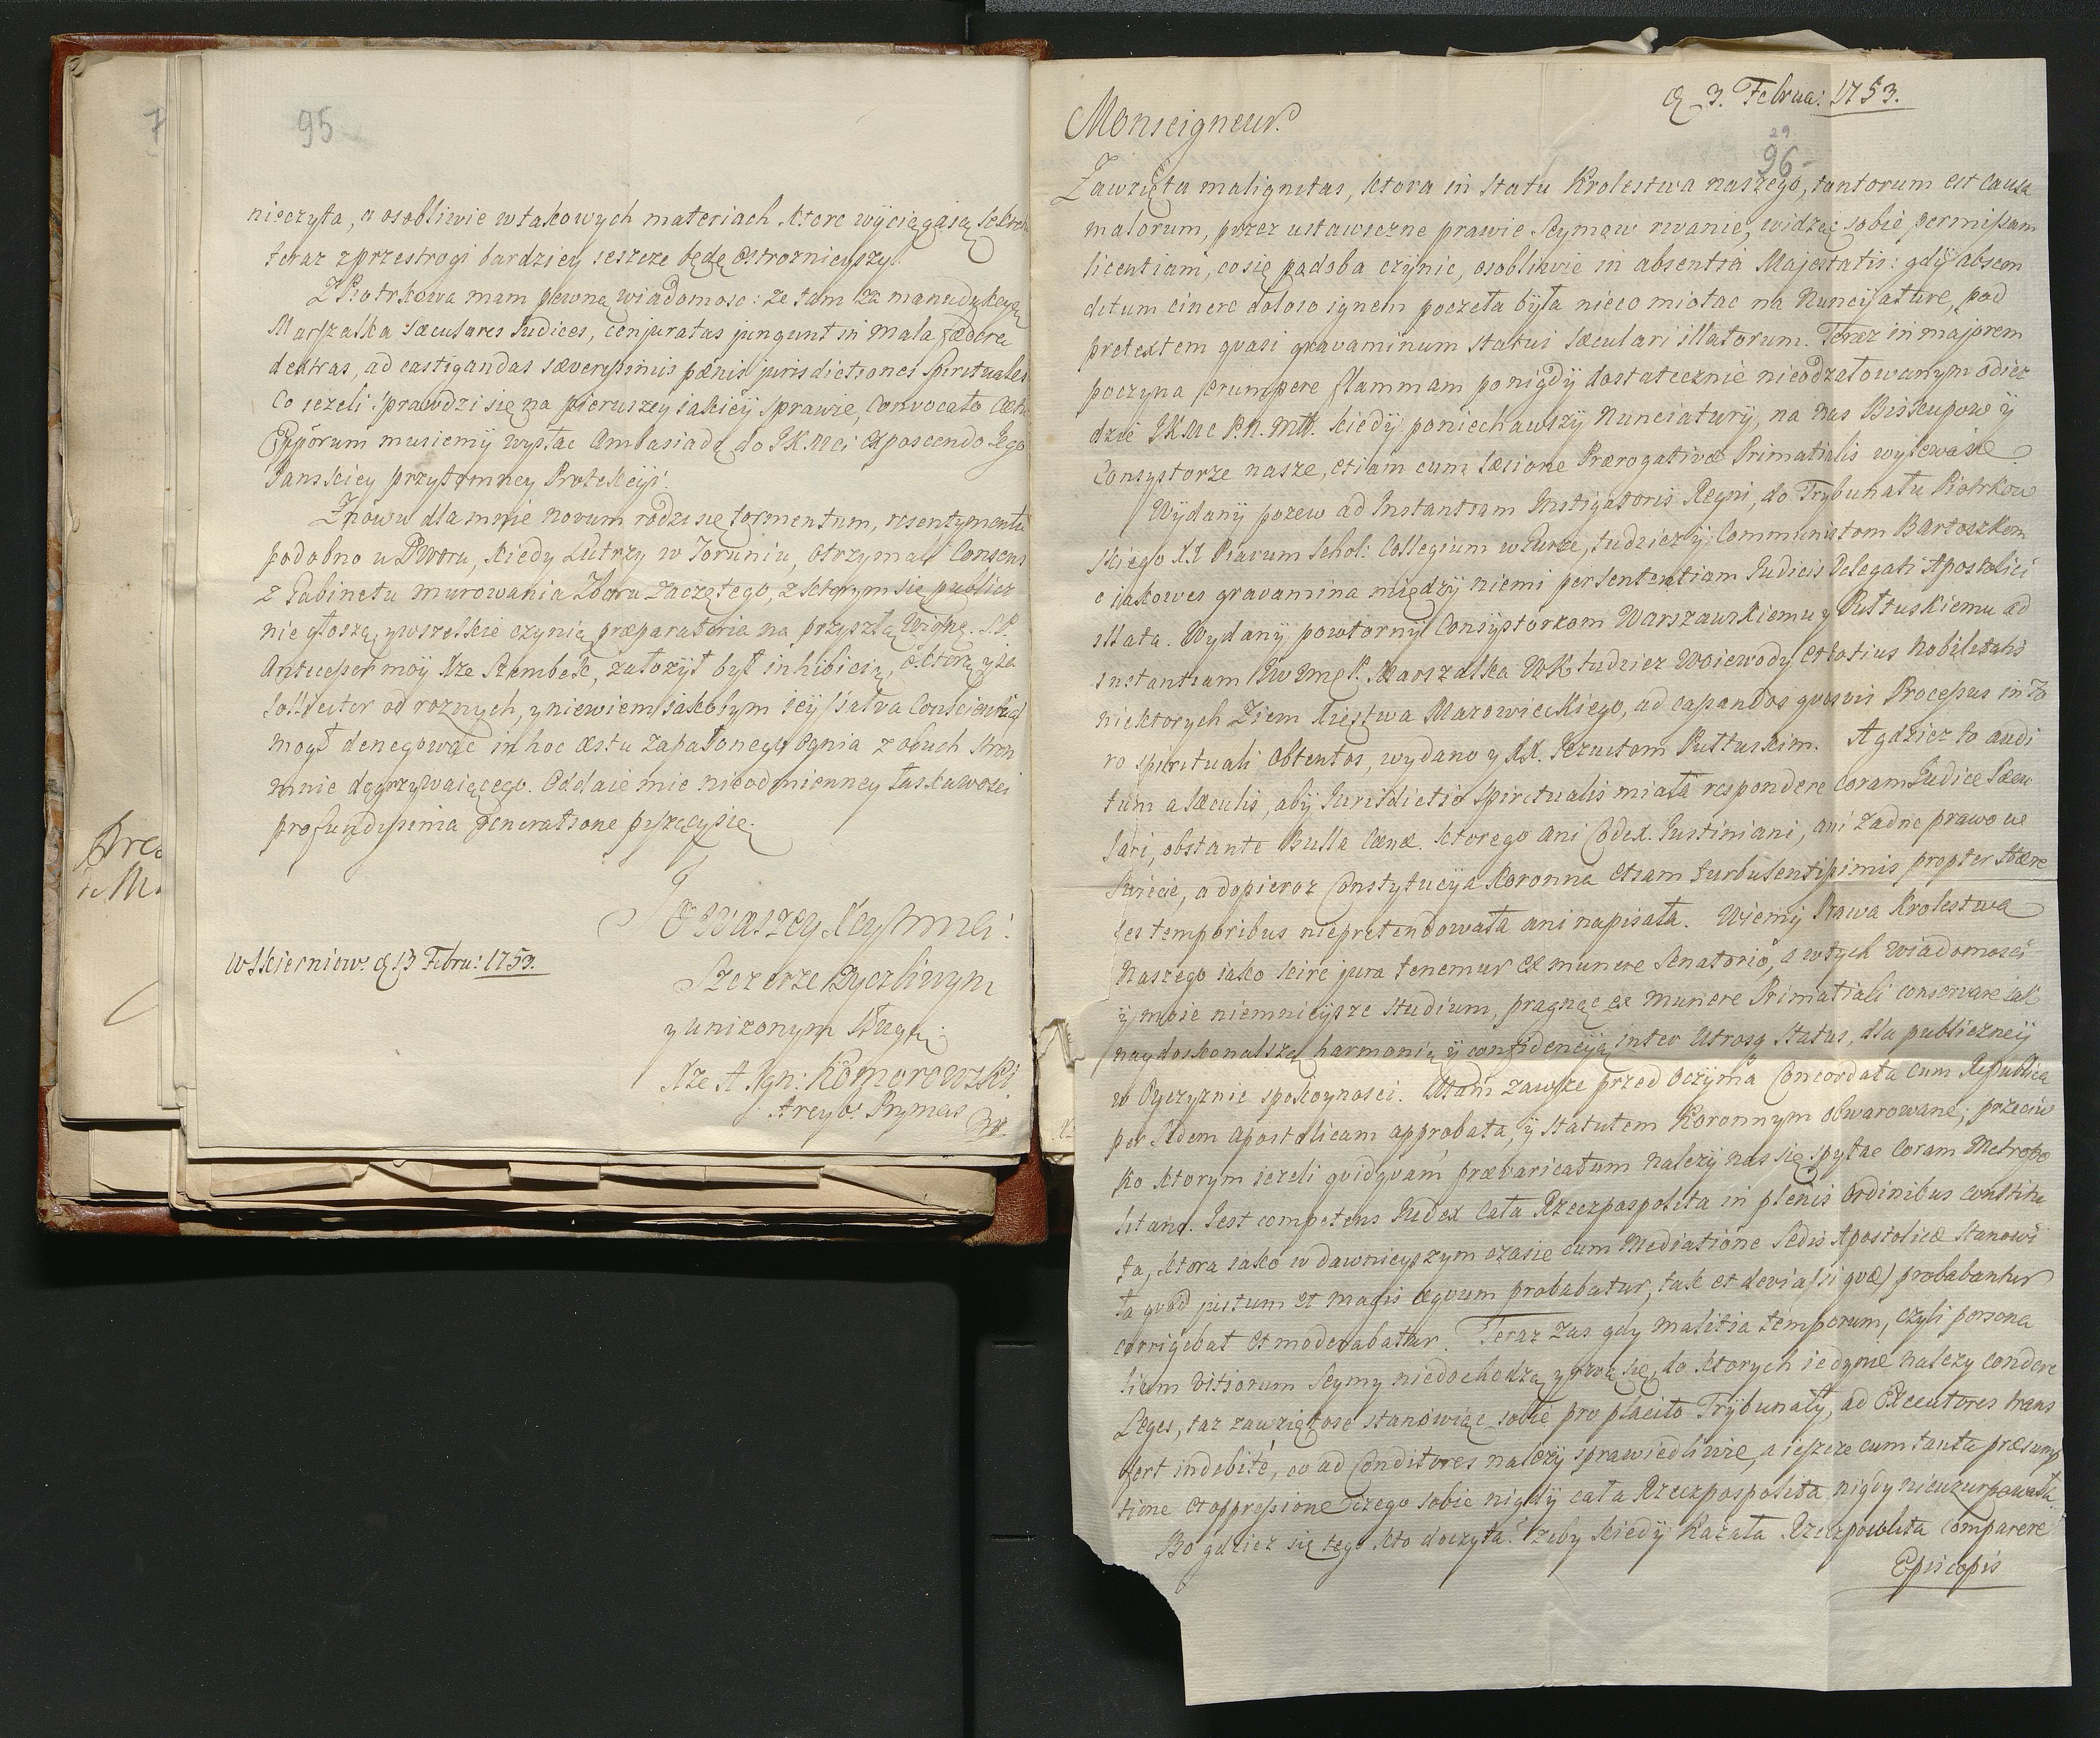 95
nieczyta, a osobliwie w takowych materiach ktore wyciągaią sekret
teraz z przestrogi bardziey ieszcze będę ostroznieyszy.
Z Piotrkowa mam pewną wiadomosc: ze tam za manudukcyą
Marszałka sæculares Judices, conjuratas jungunt in mala fædera
dextras, ad castigandas sæverissimis pænis jurisdictiones spirituales
Co iezeli sprawdzi się na pierwszey iakiey sprawie, Convocato Cætu
Epporum musiemy wysłac Ambasiadę do JKMci exposcendo Jego
Panskiey przytomney Protekcyi.
Znowu dla mnie novum rodzi się tormentum, resentymentu
podobno u Dworu, kiedy Lutrzy w Toruniu, otrzymali Consens
z Gabinetu murowania Zboru zaczętego, z ktorym się publicz
nie głoszą, y wszelkie czynią præparatoria na przyszłą Wiosnę. S.P.
Antecessor moy Xże Szembek, założył był inhibicią, o ktorą y ia
sollicitor od roznych, y niewiem iakobym iey (salva Conscientia)
mogł denegowac in hoc æstu zapalonego ognia z obuch stron
mnie dogrzywaiącego. Oddaie mie nieodmienney łaskawosci
profundissima veneratione pisząc się.
J O Waszey Xcey Mci:
Szczerze Zyczliwym
y unizonym sługą
w Skierniew: d 13 Febru: 1753.
Xże A Ign: Komorowski
Arcyb: Prymas
d 3. Februa: 1753.
Monseigneur.
29.
96
Zawzięta malignitas, ktora in statu Krolestwa naszego, tantorum est causa
malorum, przez ustawiczne prawie Seymow rwanie, widząc sobie permissam
licentiam, co się podoba czynic, osobliwie in absentia Majestatis: gdy abscon
ditum cinere doloso ignem poczeła była nieco miotac na Nuncijature, pod
pretextem quasi gravaminum statui sæculari illatorum. Teraz in majorem
poczyna erumpere flammam po nigdy dostatecznie nieodzałowanym odiez
dzie JKMc P.N. MM. kiedy poniechawszy Nunciatury, na nas Biskupow y
Consystorze nasze, etiam cum læsione Prærogativæ Primatialis wylewaią
Wydany pozew ad Instantiam Instigatoris Regni, do Trybunału Piotrkow
skiego XX Piarum Schol: Collegium w Gurze, tudziez y Communistom Bartoszkom
o iakowes gravamina między niemi per sententiam Judicis Delegati Apostolici
illata. Wydany powtorny Consystorzom Warszawskiemu y Pułtuskiemu ad
instantiam JW Jmc P. Marszałka WK tudziez Woiewody et totius Nobilitatis
niektorych Ziem Xięstwa Mazowieckiego, ad cassandos quosvis Processus in Fo
ro spirituali obtentos, wydano y XX. Jezuitom Pułtuskim. A gdziez to audi
tum a sæculis, aby Jurisdictio Spiritualis miała respondere coram Judice Sæcu
lari, obstante Bulla Cænæ. ktorego ani Codex Justiniani, ani zadne prawo na
swiecie, a dopieroz Constytucyja Koronna etiam turbulentissimis propter Hære
ses temporibus niepretendowała ani napisała. Wiemy Prawa Krolestwa
Naszego iako scire jura tenemur ex munere Senatorio, a w tych wiadomosci
y moie niemnieysze studium, pragnąc ex munere Primatiali conservare iak
naydoskonalszą harmonią y confidencyją inter Utrosq Status, dla publiczney
w Oyczyznie spokoynosci. Mam zawsze przed oczyma Concordata cum Republica
per Sedem Apostolicam approbata, y Statutem Koronnym obwarowane; przeciw
ko ktorym iezeli quidquam prævaricatum nalezy nas się spytac coram Metropo
litano. Jest competens Judex cała Rzeczpospolita in plenis Ordinibus constitu
ta, ktora iako w dawnieyszym czasie cum Mediatione Sedis Apostolicæ stanowi
ła quod justum et magis æquum probabatur, tak et devia (si quæ) probabantur
corrigebat et moderabatur. Teraz zas gdy malitia temporum, czyli persona
lium vitiorum Seymy niedochodzą y rwą się, do ktorych iedynie nalezy condere
Leges, taz zawziętosc stanowiąc sobie pro placito Trybunały, ad Executores trans
fert indebité, co ad Conditores nalezy sprawiedliwie, a ieszcze cum tanta præsump
tione et oppressione czego sobie nigdy cała Rzeczpospolita nigdy nieuzurpowała.
Bo gdziez się tego kto doczyta? zeby kiedy kazała Rzeczpospolita comparere
Episcopis